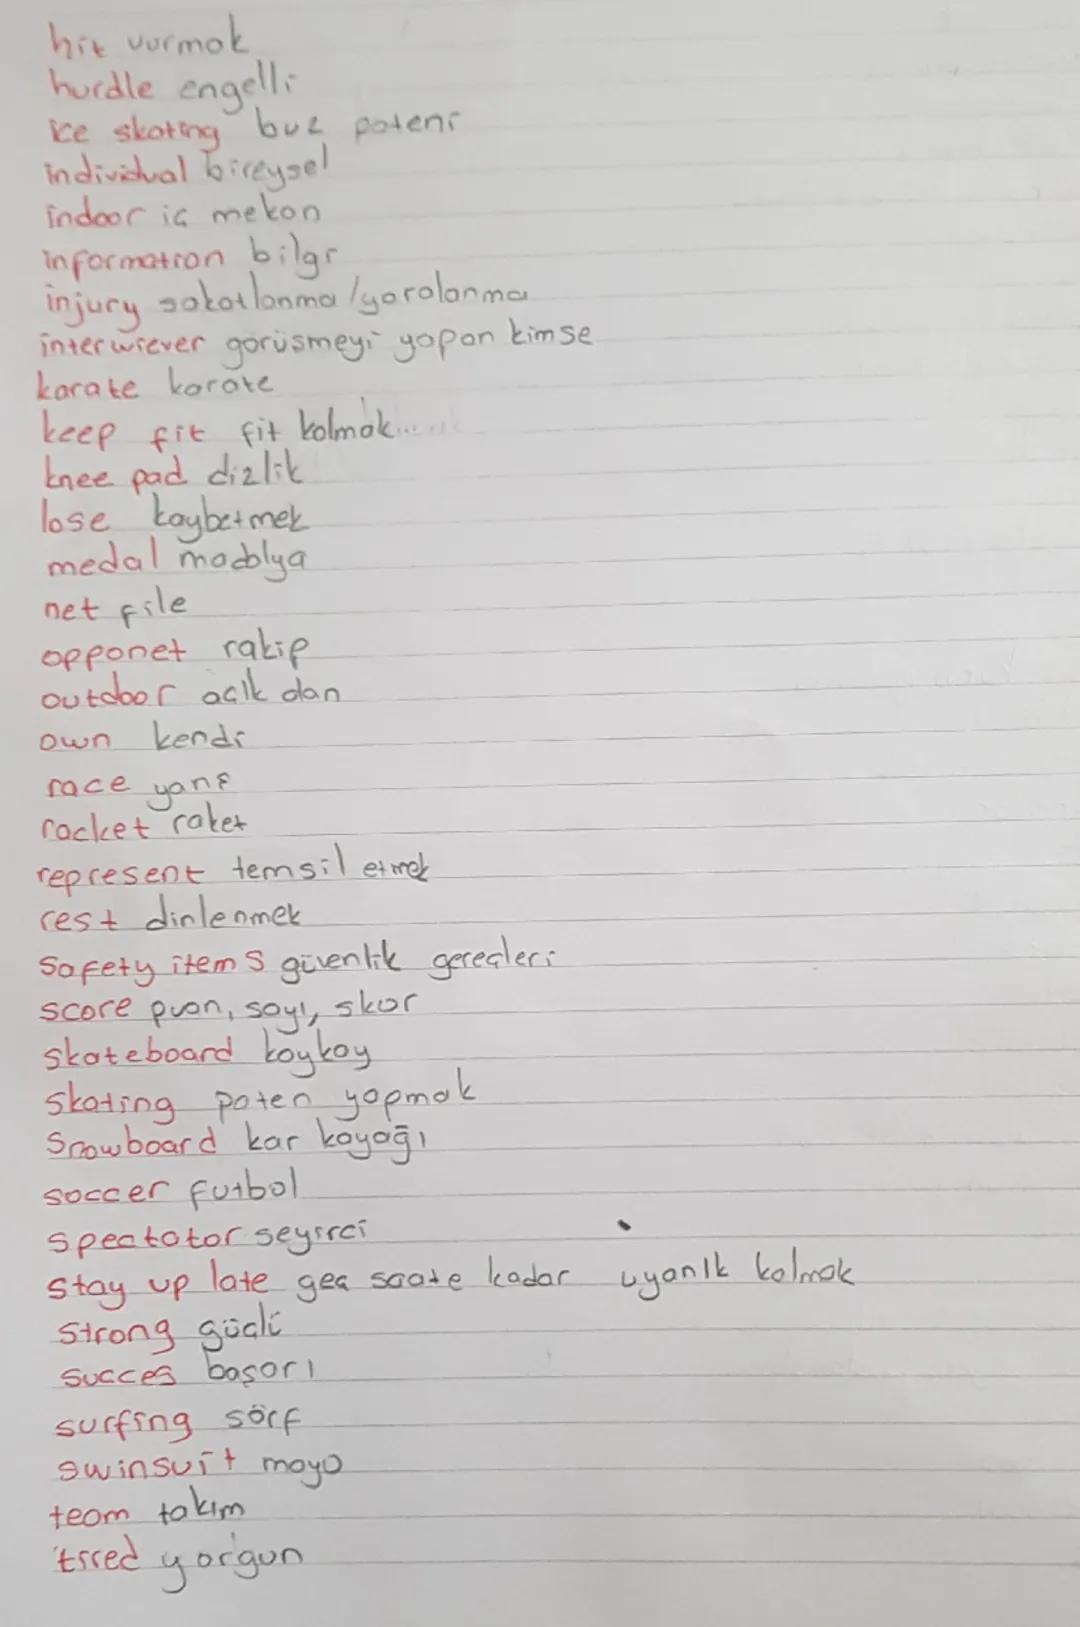 hit vurmak
hurdle engelli
ice skating buz pateni
individual bireysel
indoor iç mekan
information bilgi
injury sakatlanma/yaralanma
interwiever görüsmeyi yapan kimse
karate karate
keep fit fit kalmak.....
knee pad dizlik
lose kaybetmek
medal madalya
net file
opponet rakip
outdoor acık alan
own kendi
race yarış
racket raket
represent temsil etmek
rest dinlenmek
safety items güvenlik gereçleri
score puan, sayı, skor
skateboard kaykay
skating paten yapmak
Snowboard kar kayağı
soccer futbol
spectator seyirci
stay up late geç saate kadar uyanık kalmak
strong güçlü
succes başarı
surfing sörf
swinsuit mayo
team takım
tired yorgun